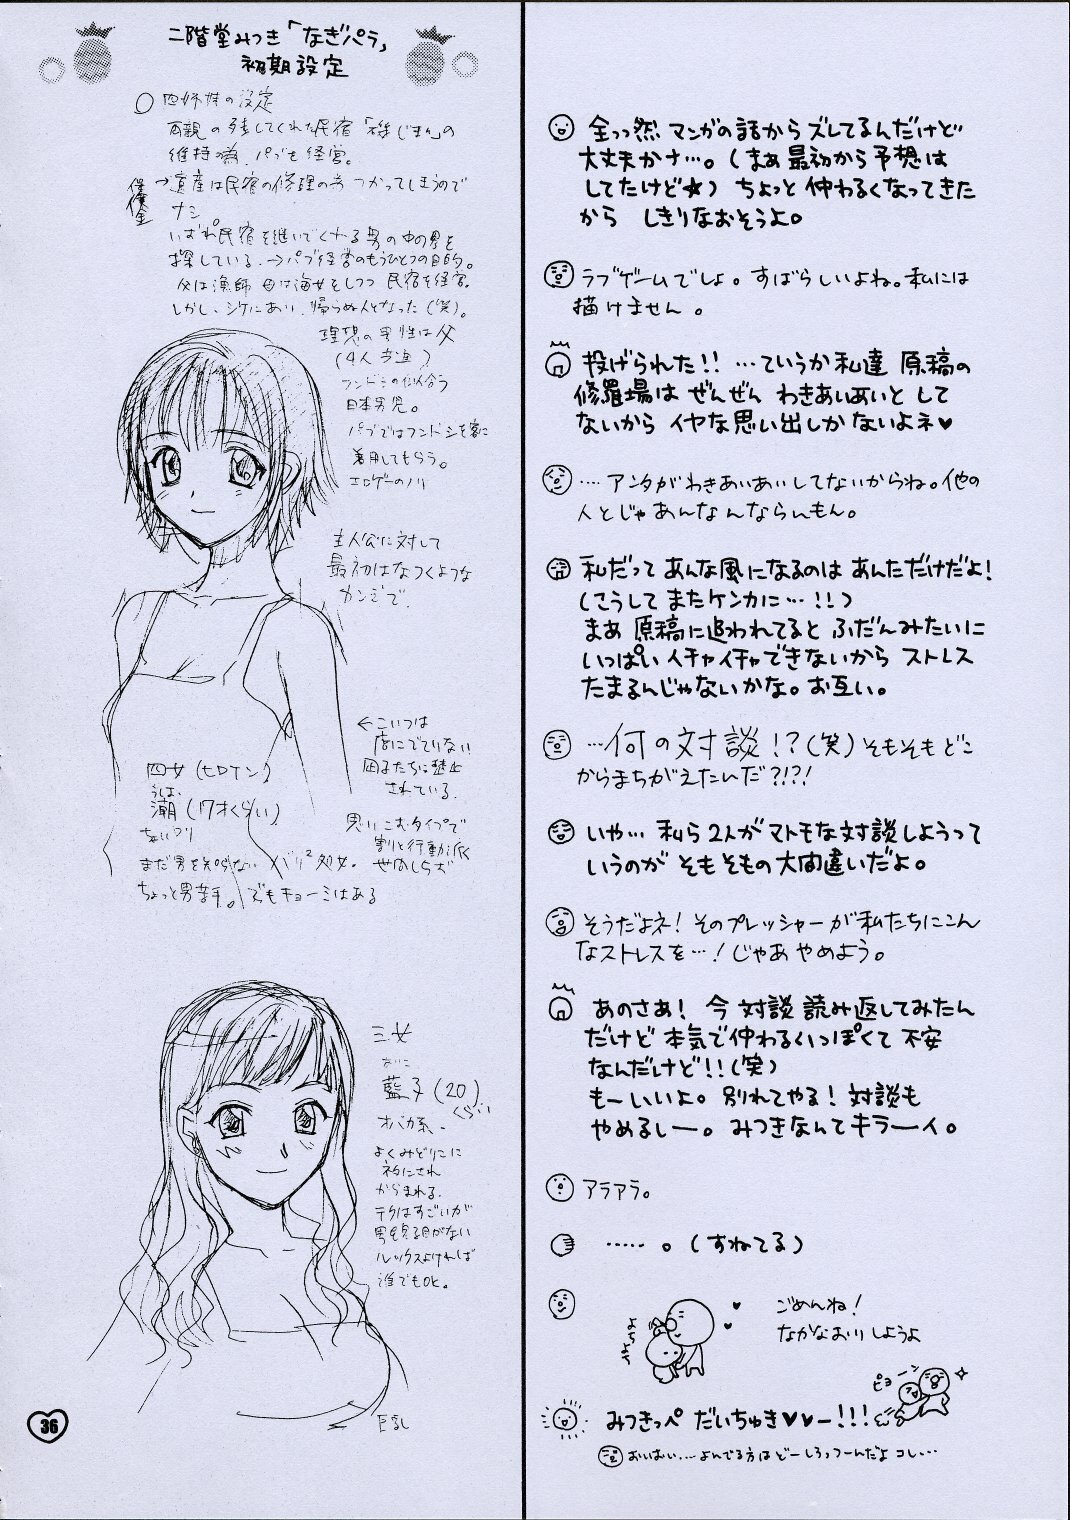 二階堂みつき「なぎパラ」
初期設定
四姉妹の設定
両親の残してくれた民宿「磯じまん」の
維持の為、パブを経営。
→遺産は民宿の修理の為つかってしまうので
ナシ
いずれ民宿を継いでくれる男の中の男を
探している。→パブ経営のもうひとつの目的。
父は漁師 母は海女をしつつ民宿を経営。
しかし、シケにあい、帰らぬ人となった(笑)。
理想の男性は父
(4人共通)
フンドシの似合う
日本男児。
パブではフンドシを客に
着用してもらう。
エロゲーのノリ
主人公に対して
最初はなつくような
カンジで
←こいつは
店にでていない
姉子たちに禁止
されている。
四女(ヒロイン)
うしお
潮(17才くらい)
まだ男を知らない バリ²処女。
ちょっと男苦手。でもキョーミはある
思いこむタイプで
割と行動派
世間しらず
三女
あいこ
藍子(20)
くらい
オバカ系。
よくみどりこに
ネタにされ
からまれる。
テクはすごいが
男を見る目がない
ルックスよければ
誰でもOK。
巨乳
36
全っっ然 マンガの話から ズレてるんだけど
大丈夫かナ…。(まぁ最初から予想は
してたけど★) ちょっと仲わるくなってきた
から しきりなおそうよ。
ラブゲームでしょ。すばらしいよね。私には
描けません。
投げられた!! …ていうか私達 原稿の
修羅場は ぜんぜん わきあいあいと して
ないから イヤな思い出しか ないよネ♥
…. アンタがわきあいあいしてないからね。他の
人とじゃあんなんならんもん。
私だって あんな風になるのは あんただけだよ!
(こうして またケンカに…!!)
まぁ 原稿に追われてると ふだんみたいに
いっぱい イチャイチャできないから ストレス
たまるんじゃないかな。お互い。
…何の対談!?(笑)そもそもどこ
からまちがえたんだ?!?!
いや… 私ら2人が マトモな対談しようって
いうのが そもそもの大間違いだよ。
そうだよネ! そのプレッシャーが私たちにこん
なストレスを…! じゃあ やめよう。
あのさぁ! 今 対談 読み返してみたん
だけど 本気で仲わるくいっぽくて 不安
なんだけど!!(笑)
もーいいよ。別れてやる! 対談も
やめるしー。みつきなんてキラーイ。
アラアラ。
…‥。(すねてる)
ごめんね!
なかなおりしようよ
よしよし
ピョーン
みつきっぺ だいちゅき♥♥ー!!!
おいおい… よんでる方はどーしろっつーんだよ コレ…